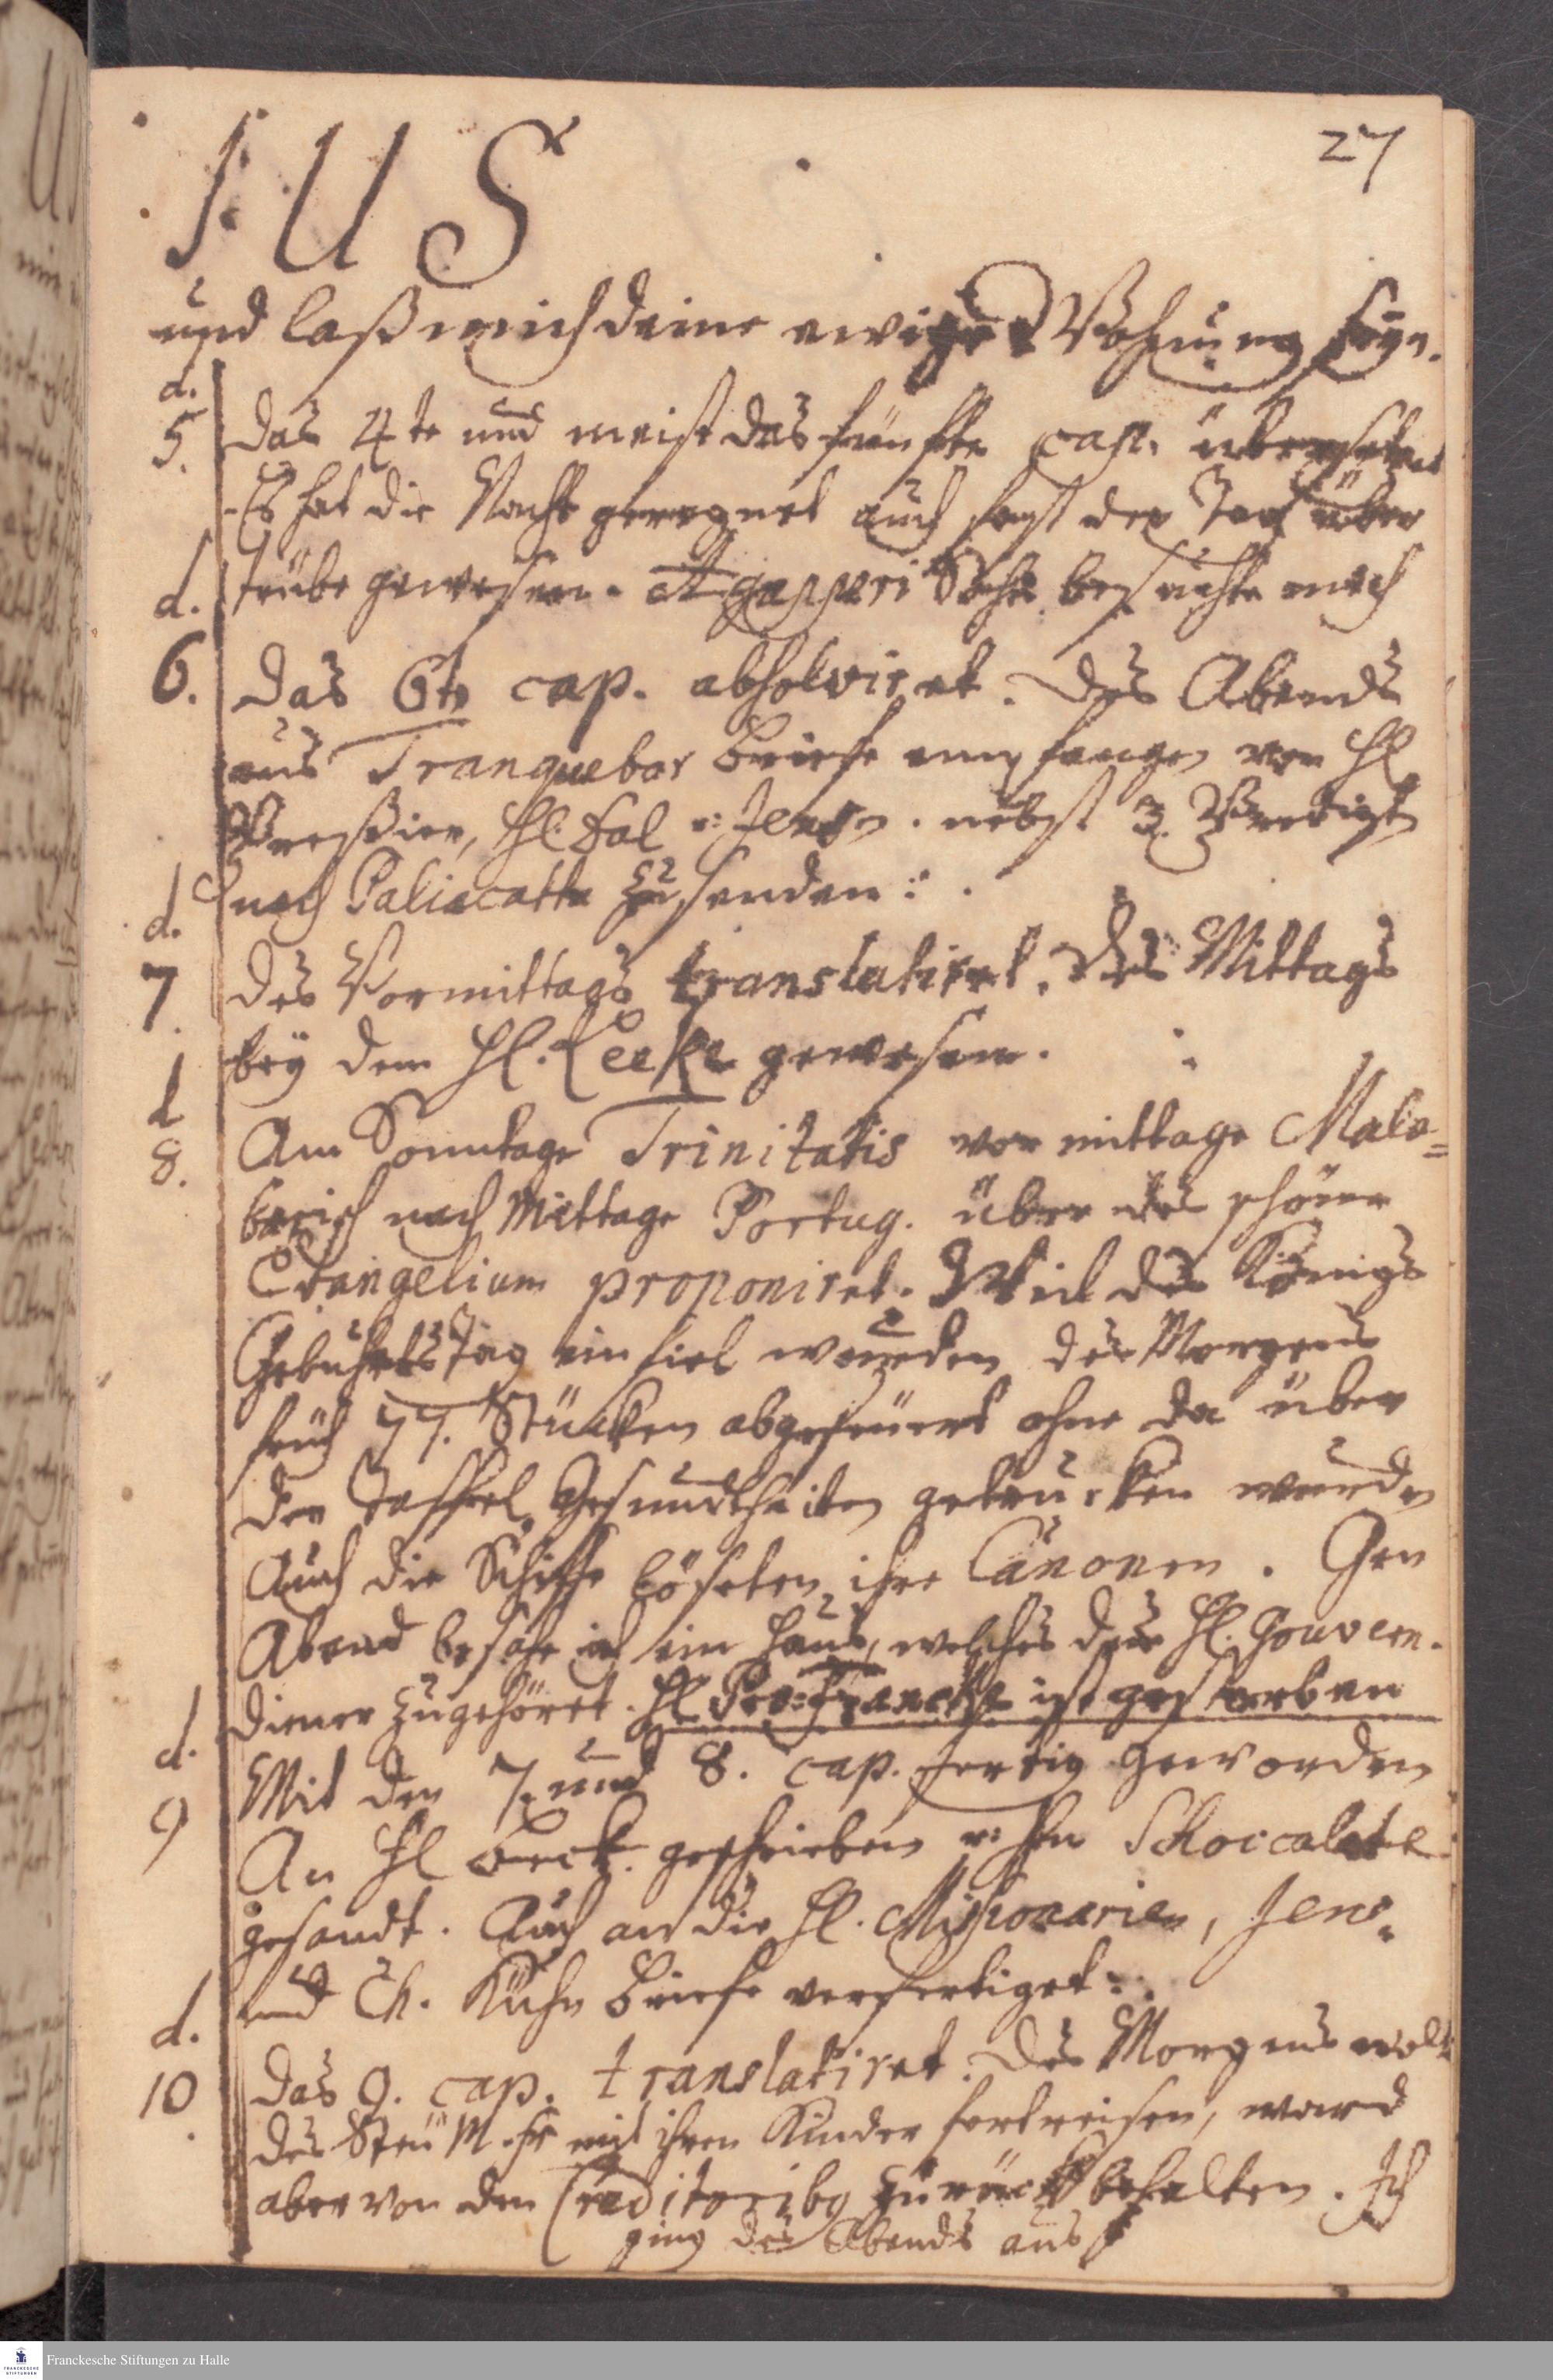 27
S U S
und laß mich deine ewige Wohnung seyn.
d.
5. das 4te und meist das fünfte cap. übersetzet
Es hat die Nacht geregnet auch fast den Tag über
d. trübe gewesen. besuchte mich
6. das 6te cap. absolviret. Des Abends
aus Tranquebar briefe empfangen von Hl
Pressier, Hl. Dal u: Jens. nebst 3. Predigt
d. nach Paliacatta zu senden.
7. Des Vormittags translatiret. Des Mittags
bey dem Hl. gewesen.
d
8. Am Sonntage Trinitatis vor mittage Mala=
barisch nach Mittage Portug. über das schöne
Evangelium proponiret. Weil des Königs
Gebuhrts Tag einfiel wurden des Morgens
früh 77. Stücken abgefeuert ohne da über
der Taffel Gesundtheiten getruncken wurden
Auch die Schiffe löseten ihre Canonen. Gen
Abend besahe ich ein Haus, welches des Hl. Gouvern.
d. diener zugehöret. Hl. Pro: Francke ist gestorben
9 Mit den 7. und 8. cap. fertig geworden
An Hl geschrieben u: ihm Schoccolate
gesandt. Auch an die Hl. Missionarien, Jens.
d. und Ch. Kühn briefe verfertiget.
10 das 9. cap. translatiret. Des Morgens wolt
des mit ihren Kinder fortreisen, ward
aber von den Creditoribg zurück behalten. Ich
ging des Abends aus
Franckesche Stiftungen zu Halle